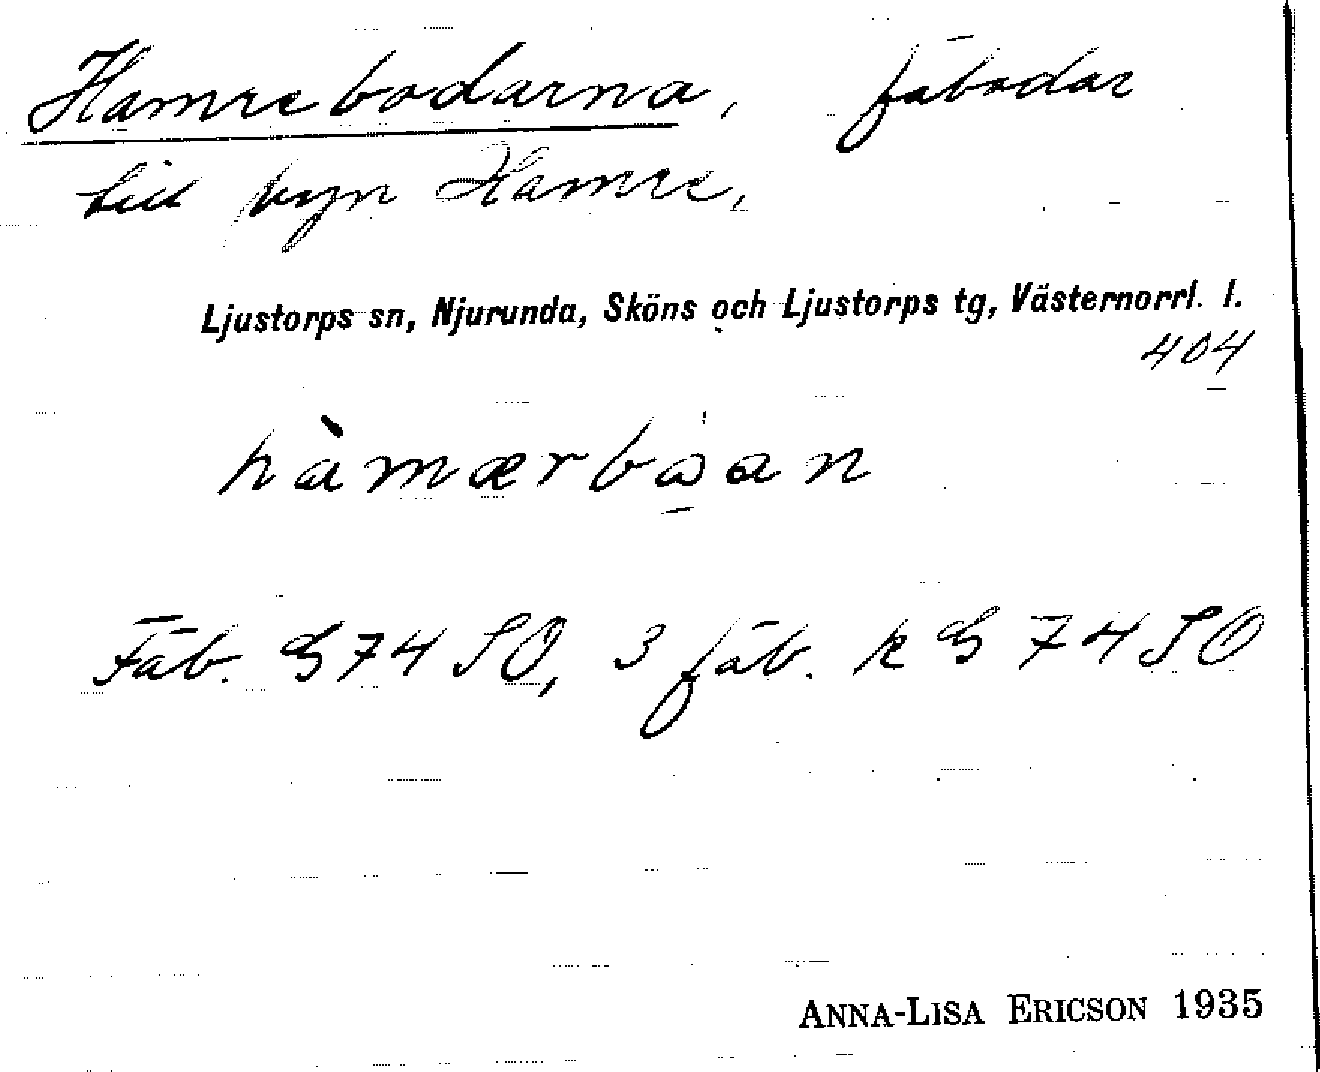 Hamrebodarna, fäbodar
till byn Hamre,
Ljustorps sn, Njurunda, Sköns och Ljustorps tg, Västernorrl. l.
404
hàmærbɷan
Fäb. G74SO, 3 fäb. k G 74 SO
ANNA-LISA ERICSON 1935